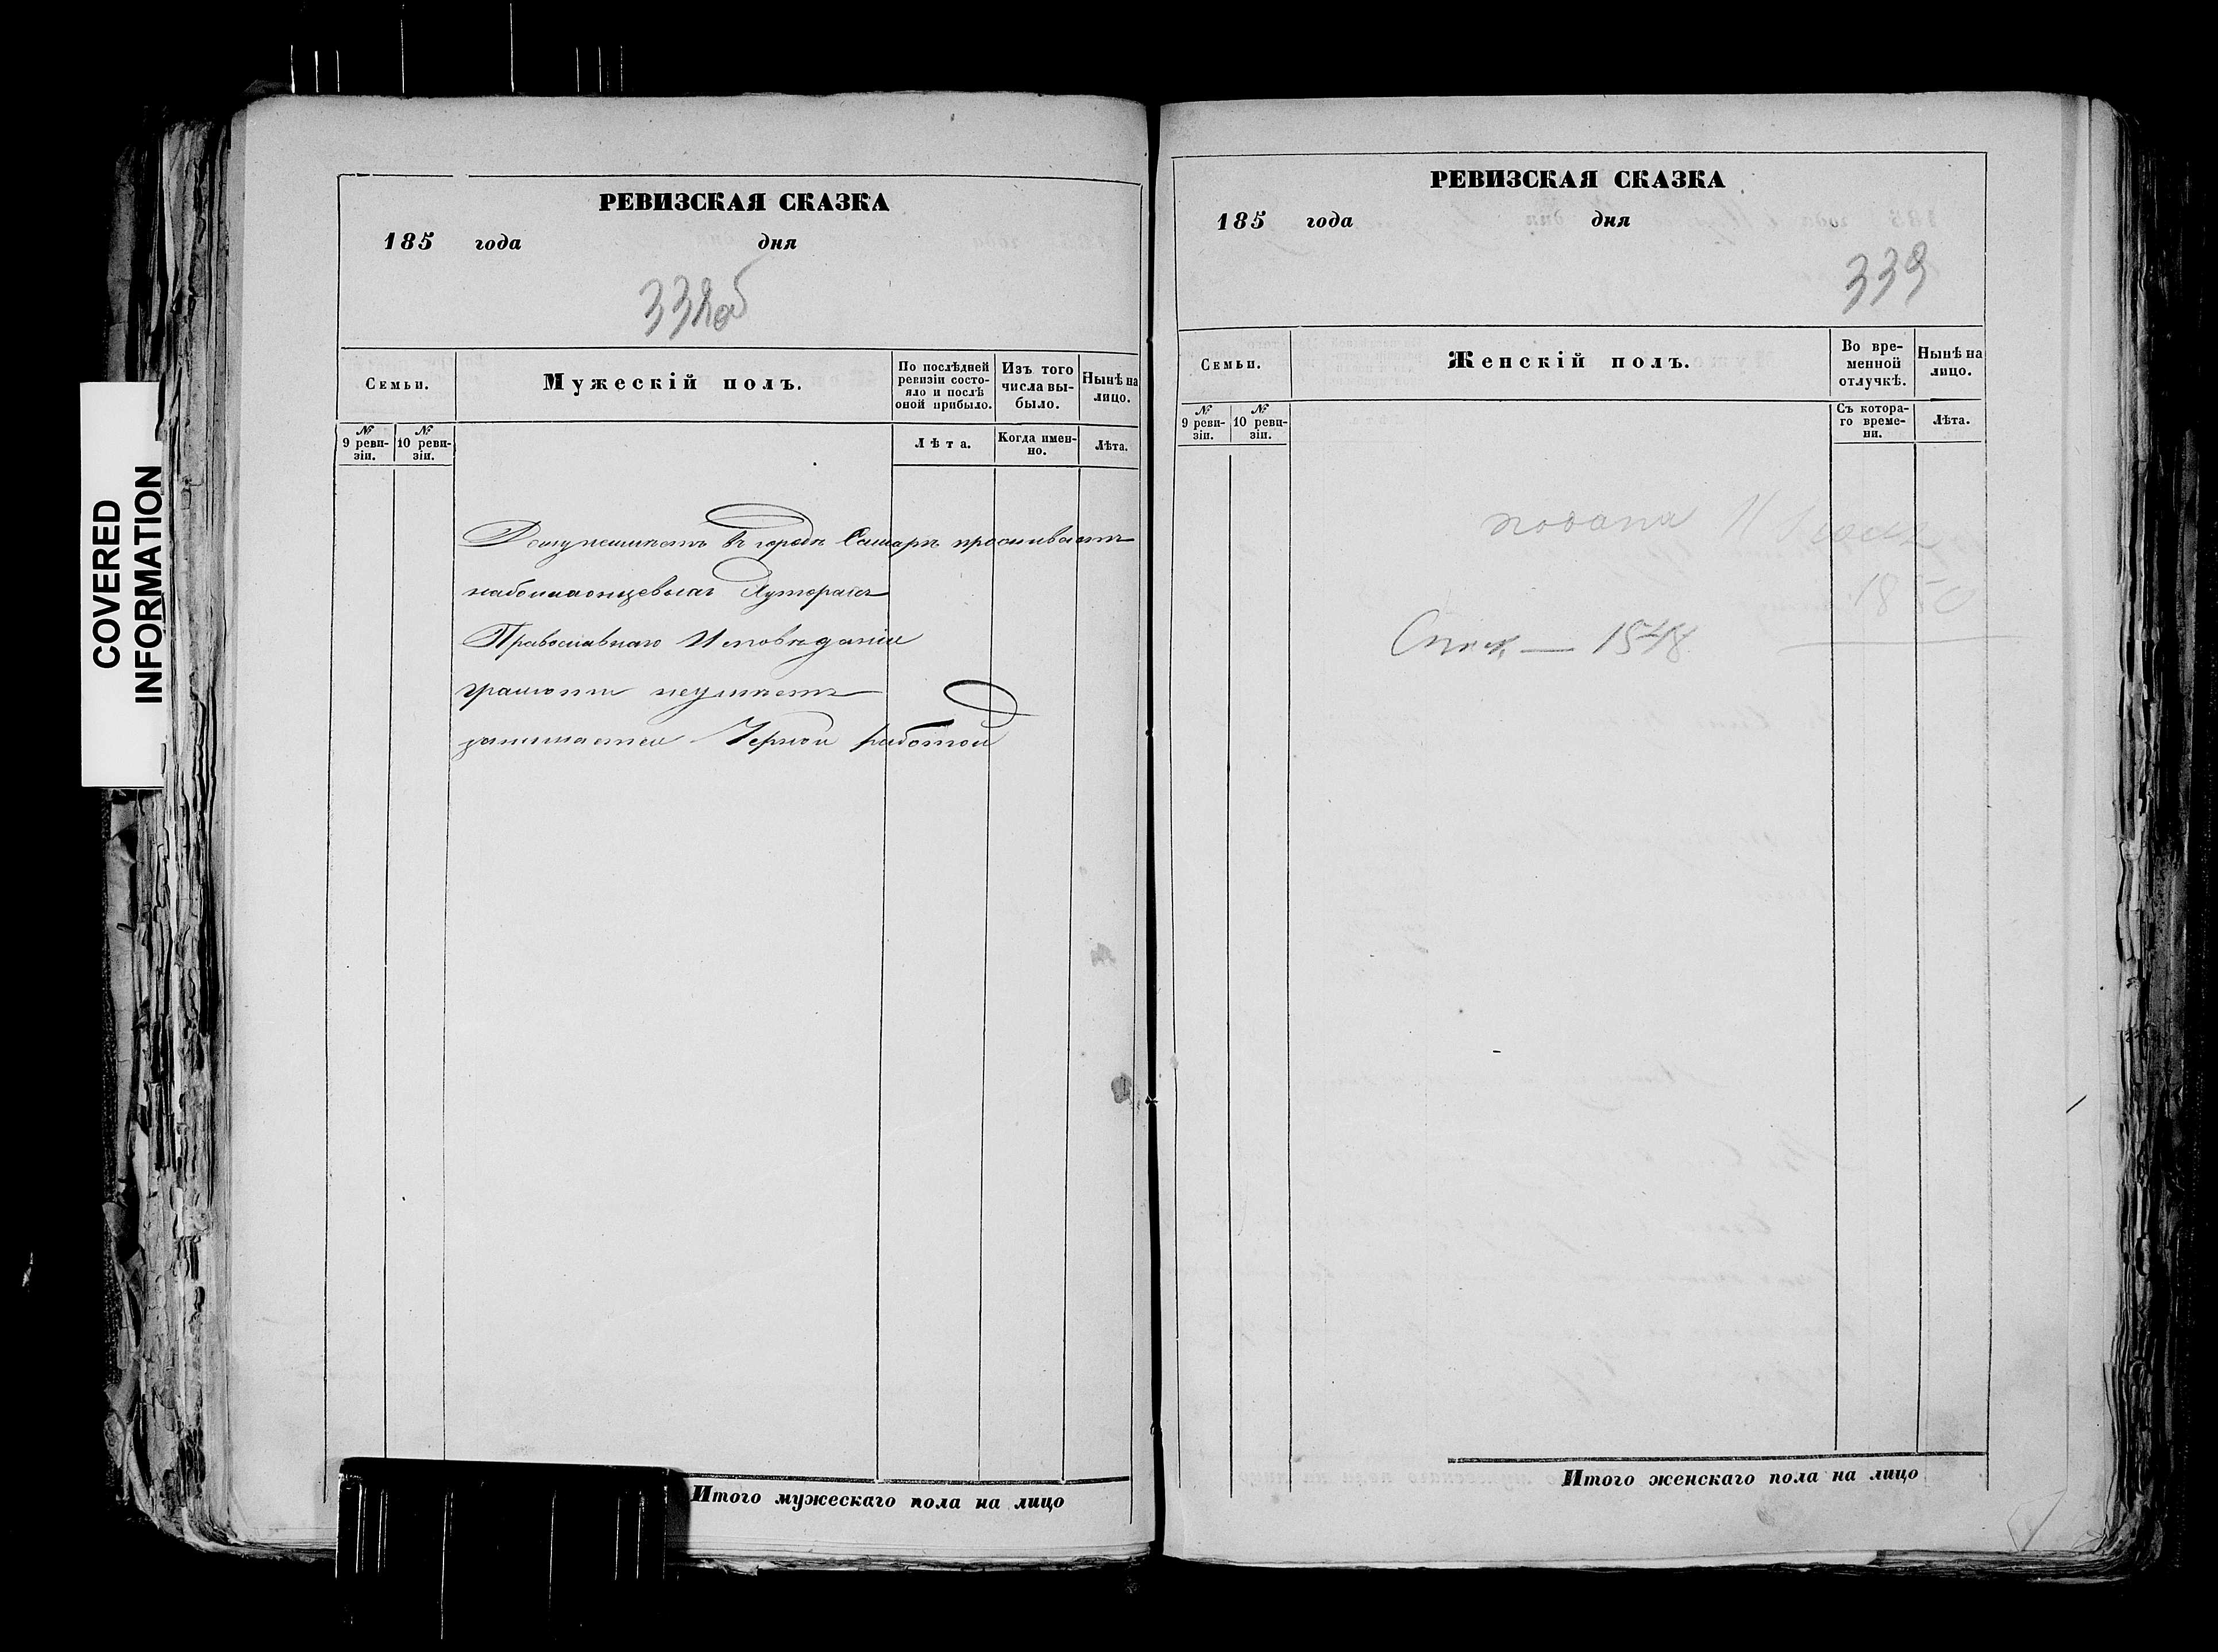 COVERED
INFORMATION
РЕВИЗСКАЯ СКАЗКА
185 года дня
338об
Семьи.
Мужескій полъ.
По послѣдней
ревизіи состо-
яло и послѣ
оной прибыло.
Изъ того
числа вы-
было.
Нынѣ на
лицо.
№
9 реви-
зіи.
№
10 реви-
зіи.
Лѣта.
Когда имен-
но.
Лѣта.
Домъ имѣетъ въ городѣ Самарѣ проживаетъ
Хуторахъ
Православнаго Исповѣданія
грамоти неумѣетъ
занимается Черной работой
Итого мужескаго пола на лицо
РЕВИЗСКАЯ СКАЗКА
185 года дня
339
Семьи.
Женскій полъ.
Во вре-
менной
отлучкѣ.
Нынѣ на
лицо.
№
9 реви-
зіи.
№
10 реви-
зіи.
Съ котора-
го време-
ни.
Лѣта.
подана
1850
1548
Итого женскаго пола на лицо